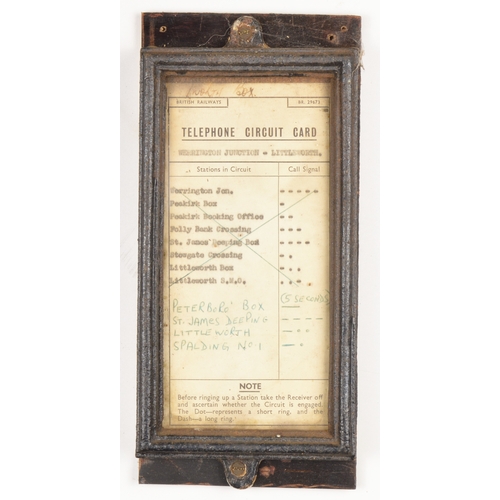 Box
BRITISH RAILWAYS
TELEPHONE CIRCUIT CARD
WERRINGTON JUNCTION - LITTLEWORTH.
Stations in Circuit Call Signal
Werrington Jun.
Peakirk Box
Peakirk Booking Office
Folly Bank Crossing
St. James' Deeping Box
Stowgate Crossing
Littleworth Box
Littleworth S.M.O.
PETERBORO' BOX (5 SECONDS)
ST. JAMES DEEPING
LITTLEWORTH
SPALDING No 1
NOTE
Before ringing up a Station take the Receiver off
and ascertain whether the Circuit is engaged.
The Dot—represents a short ring, and the
Dash—a long ring.